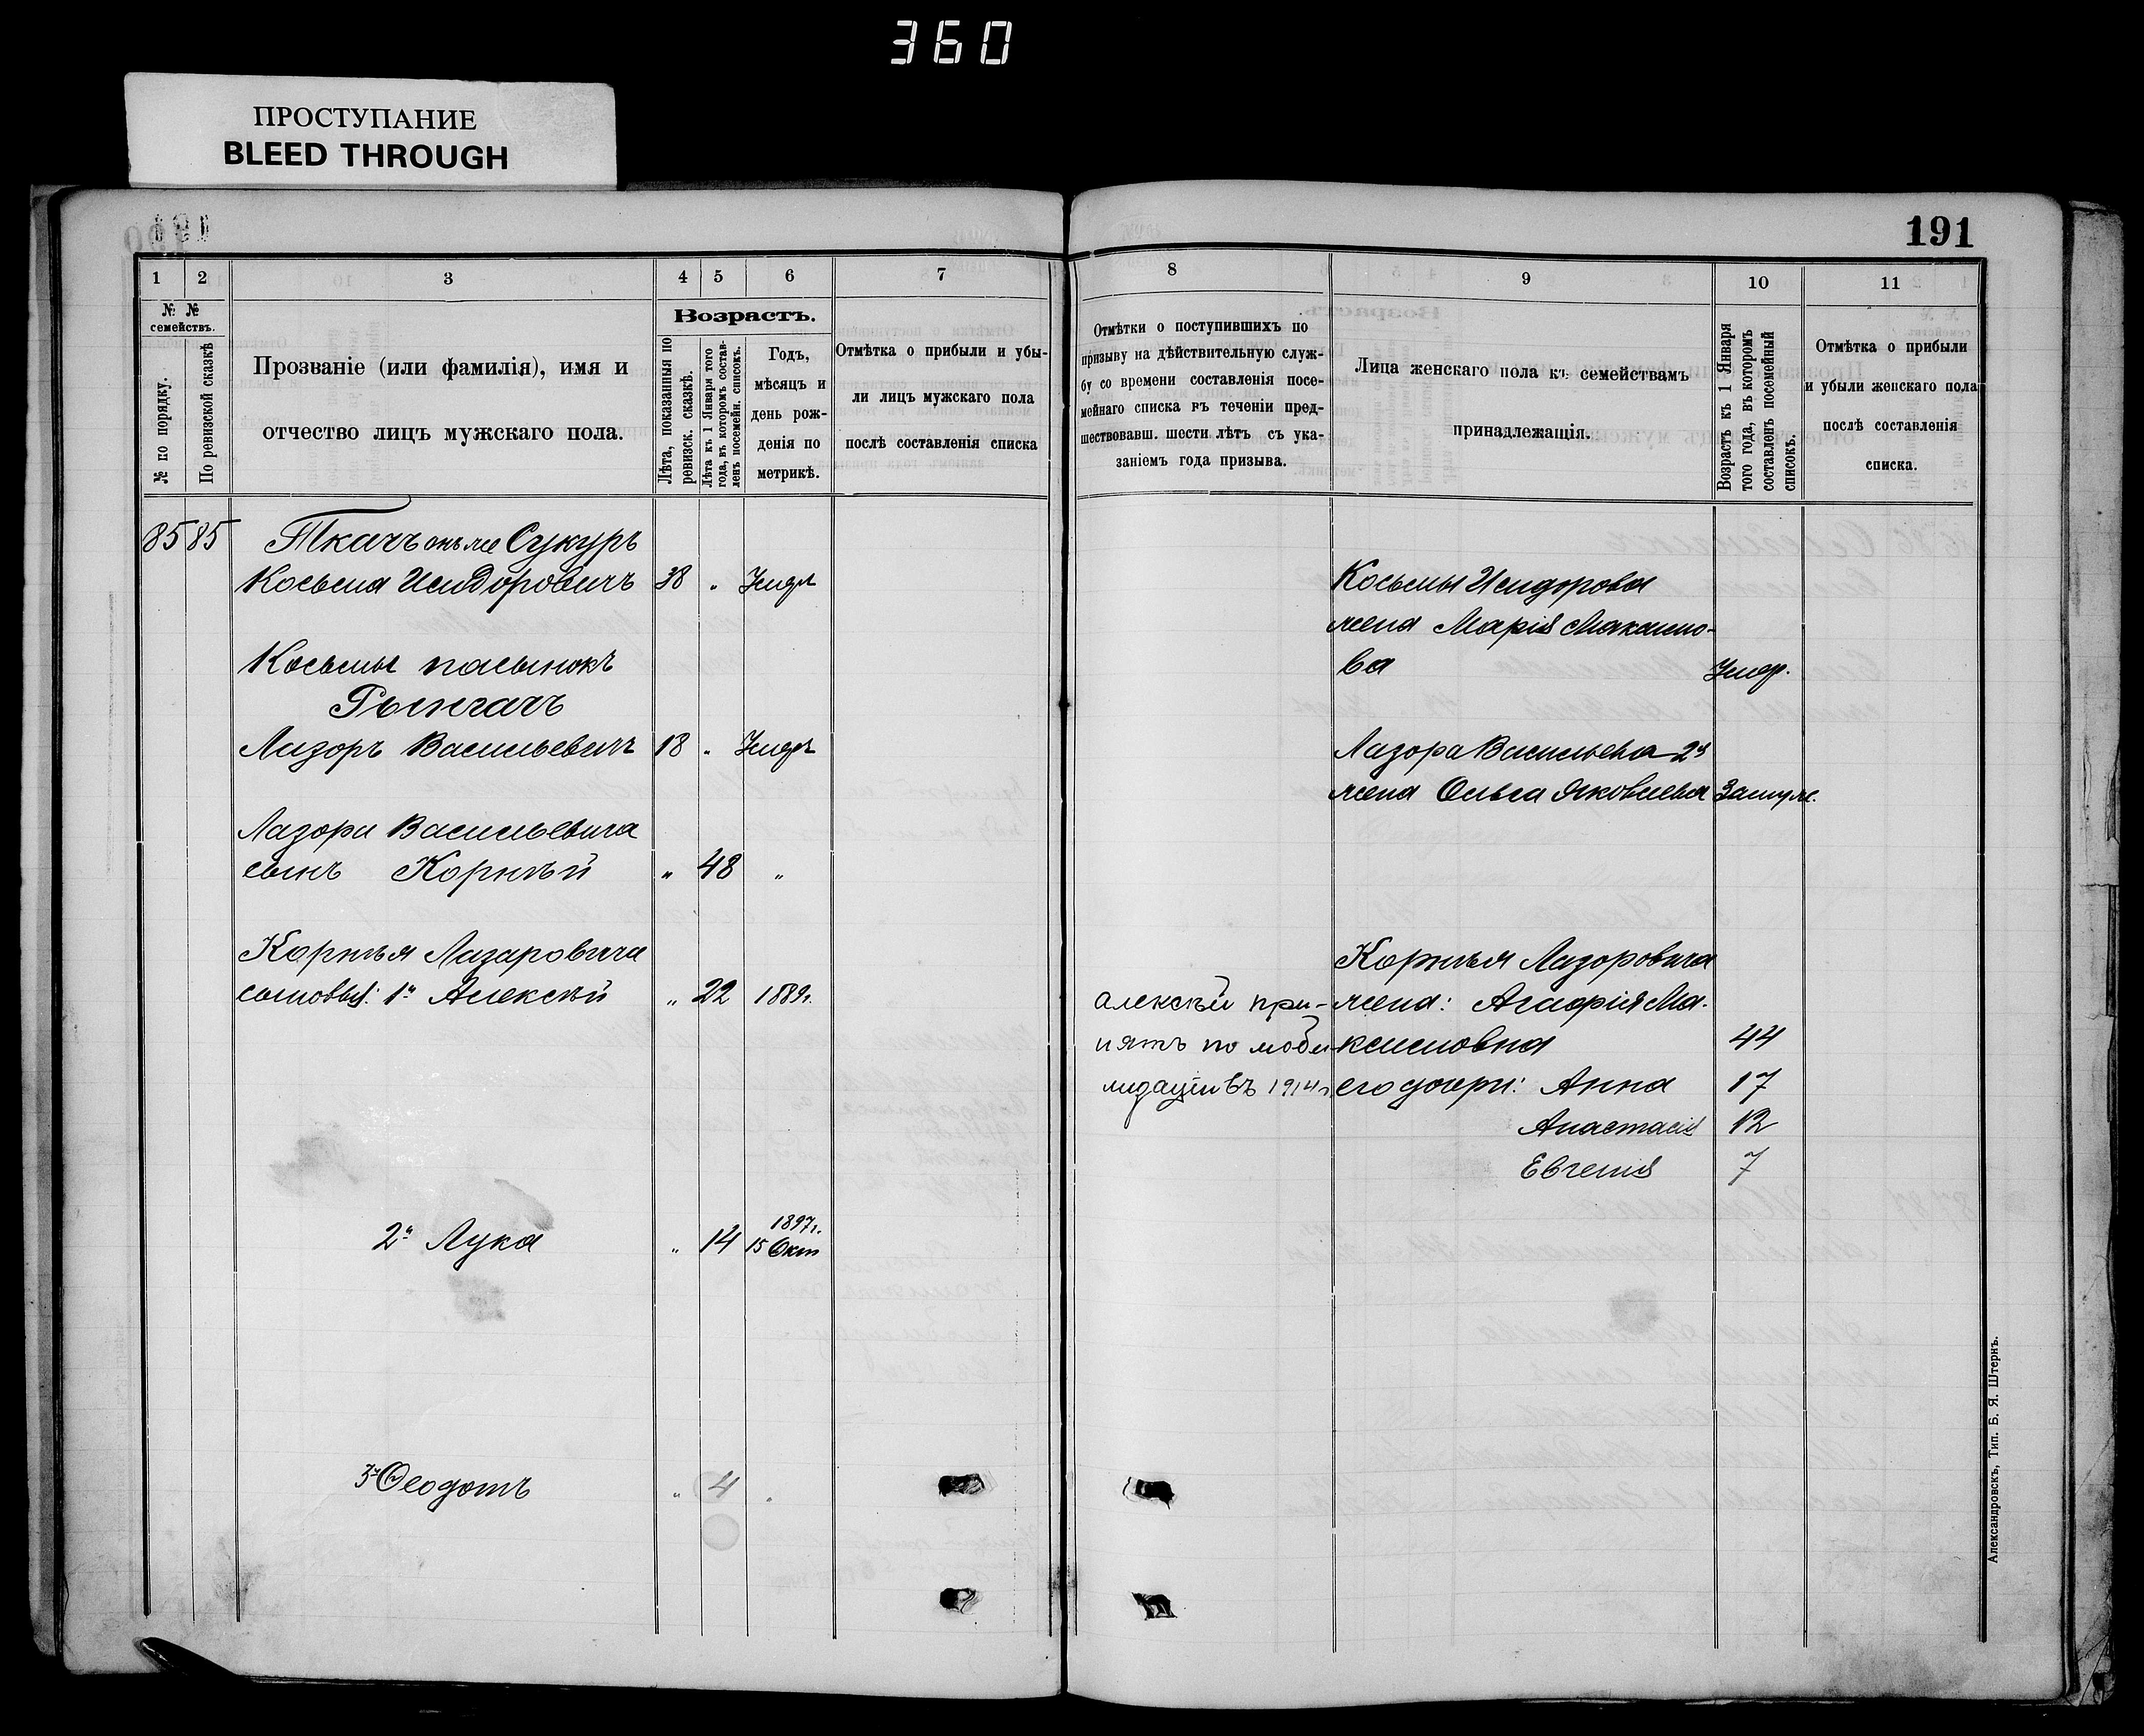 360
ПРОСТУПАНИЕ
BLEED THROUGH
191
1 2 3 4 5 6 7
№ № семействъ.
№ по порядку.
По ревизской сказкѣ
Прозваніе (или фамилія), имя и
отчество лицъ мужскаго пола.
Возрастъ.
Лѣта, показанныя по
ревизск. сказкѣ.
Лѣта къ 1 Января того
года, въ которомъ состав-
ленъ посемейн. списокъ.
Годъ,
мѣсяцъ и
день рож-
денія по
метрикѣ.
Отмѣтка о прибыли и убы-
ли лицъ мужскаго пола
послѣ составленія списка
85 85 Ткачъ онъ же Сукуръ
Косьма Исидоровичъ 38 „ Умер
Косьмы пасынокъ
Рымгачъ
Лазоръ Васильевичъ 18 „ Умер
Лазора Васильевича
сынъ Корнѣй „ 48 „
Корнѣя Лазаровича
сыновья: 1й Алексѣй „ 22 1889г.
2й Лука „ 14 1897г.
15 Окт
3й Ѳеодотъ „ 4 „
8 9 10 11
Отмѣтки о поступившихъ по
призыву на дѣйствительную служ-
бу со времени составленія посе-
мейнаго списка въ теченіи пред-
шествовавш. шести лѣтъ съ ука-
заніемъ года призыва.
Лица женскаго пола къ семействамъ
принадлежащія.
Возрастъ къ 1 Января
того года, въ которомъ
составленъ посемейный
списокъ.
Отмѣтка о прибыли
и убыли женскаго пола
послѣ составленія
списка.
Косьмы Исидорова
жена Марія Максимо-
ва Умер.
Лазора Васильева 2я
жена Ольга Яковлева Замуж.
Корнѣя Лазоровича
алексѣй при- жена: Агафія Ма-
нятъ по моби- ксимовна 44
лизаціи въ 1914 г. его дочери: Анна 17
Анастасія 12
Евгенія 7
Александровскъ, Тип. Б. Я. Штернъ.